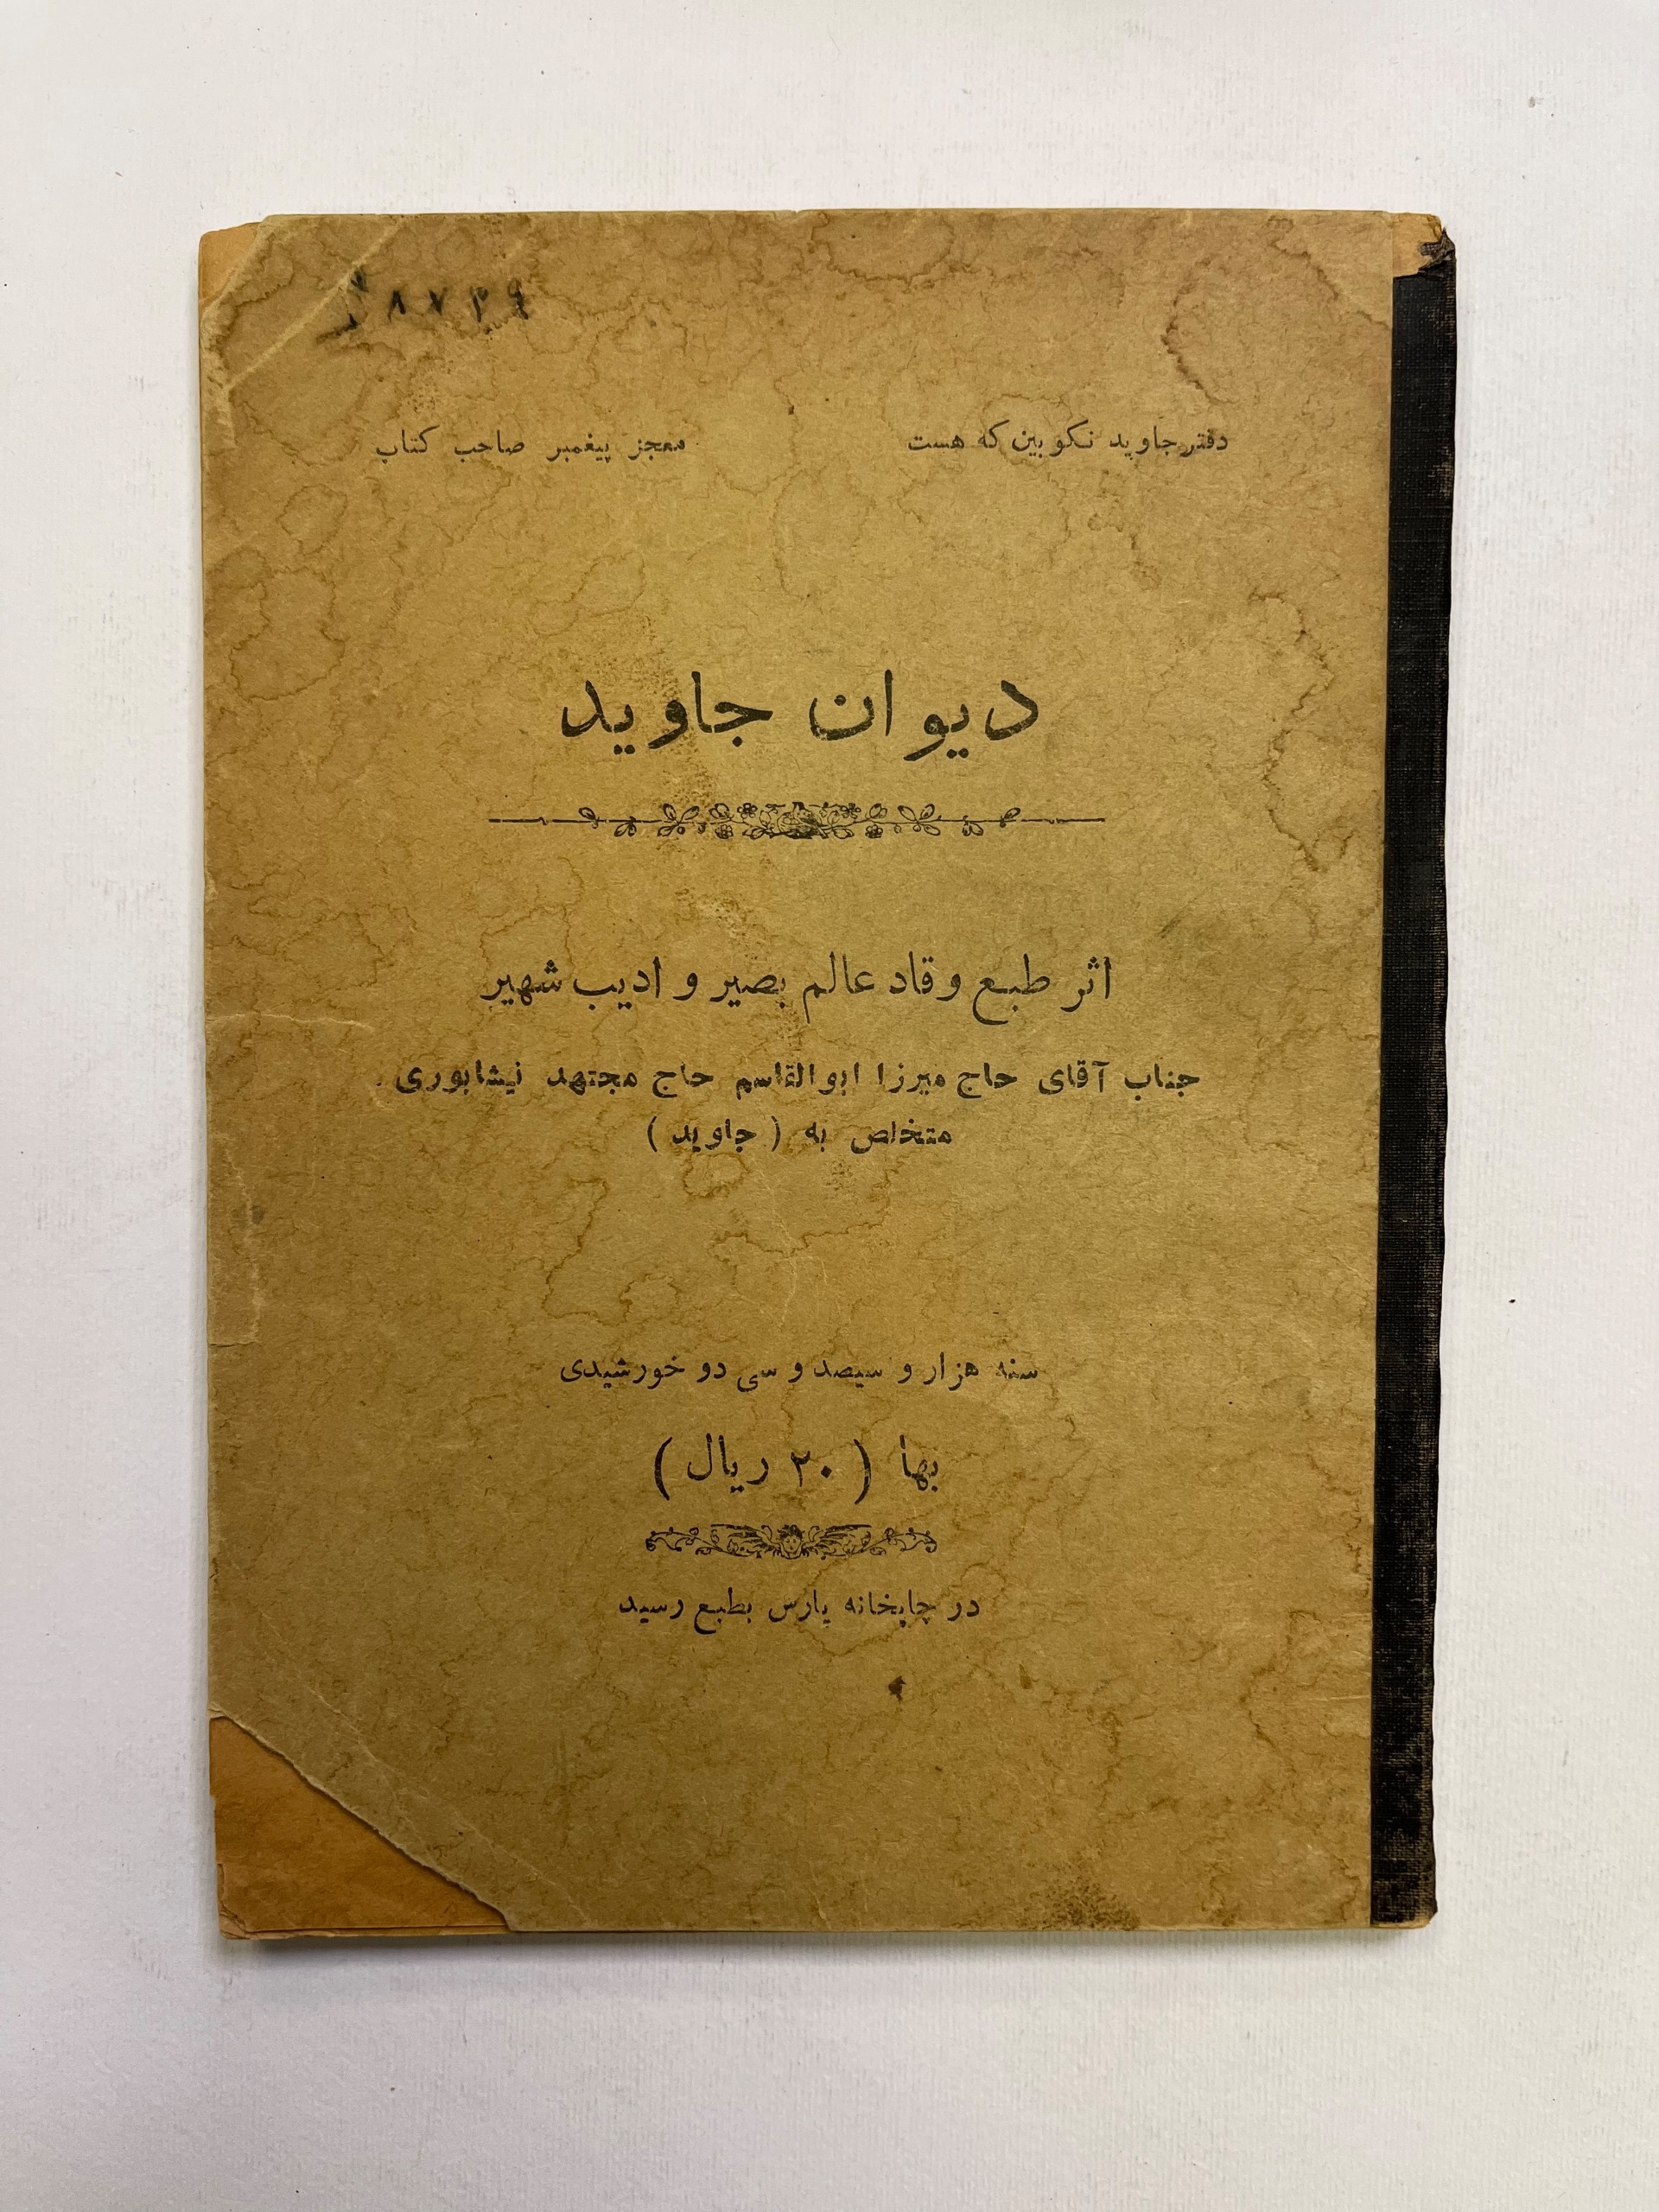 ۸۷۳۹
دفتر جاوید نکو بین که هست معجز پیغمبر صاحب کتاب
دیوان جاوید
اثر طبع وقاد عالم بصیر و ادیب شهیر
جناب آقای حاج میرزا ابوالقاسم حاج مجتهد نیشابوری
متخلص به ( جاوید )
سنه هزار و سیصد و سی دو خورشیدی
بها ( ۲۰ ریال )
در چاپخانه پارس بطبع رسید